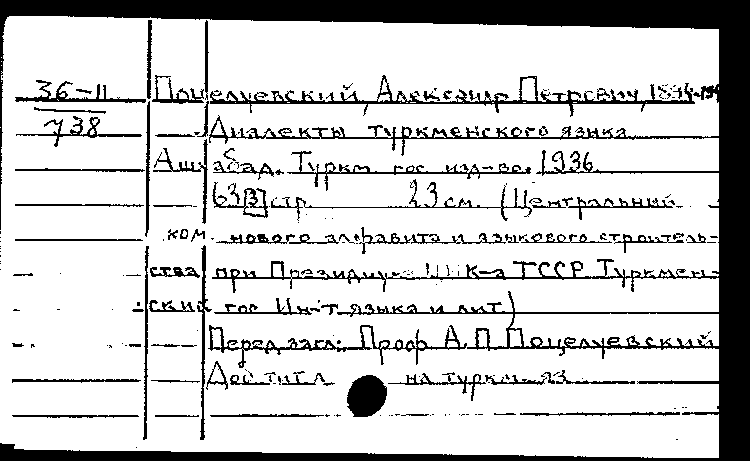 36-11
738
Поцелуевский, Александр Петрович, 1894-
Диалекты туркменского языка.
Ашхабад. Туркм. гос. изд-во. 1936.
63[3] стр. 23 см. (Центральный
ком. нового алфавита и языкового строитель-
ства при Президиуме ЦИК-а ТССР. Туркмен-
ский гос. Ин-т языка и лит.)
Перед загл.: Проф. А. П. Поцелуевский
Доп. тит. л. на туркм. яз.